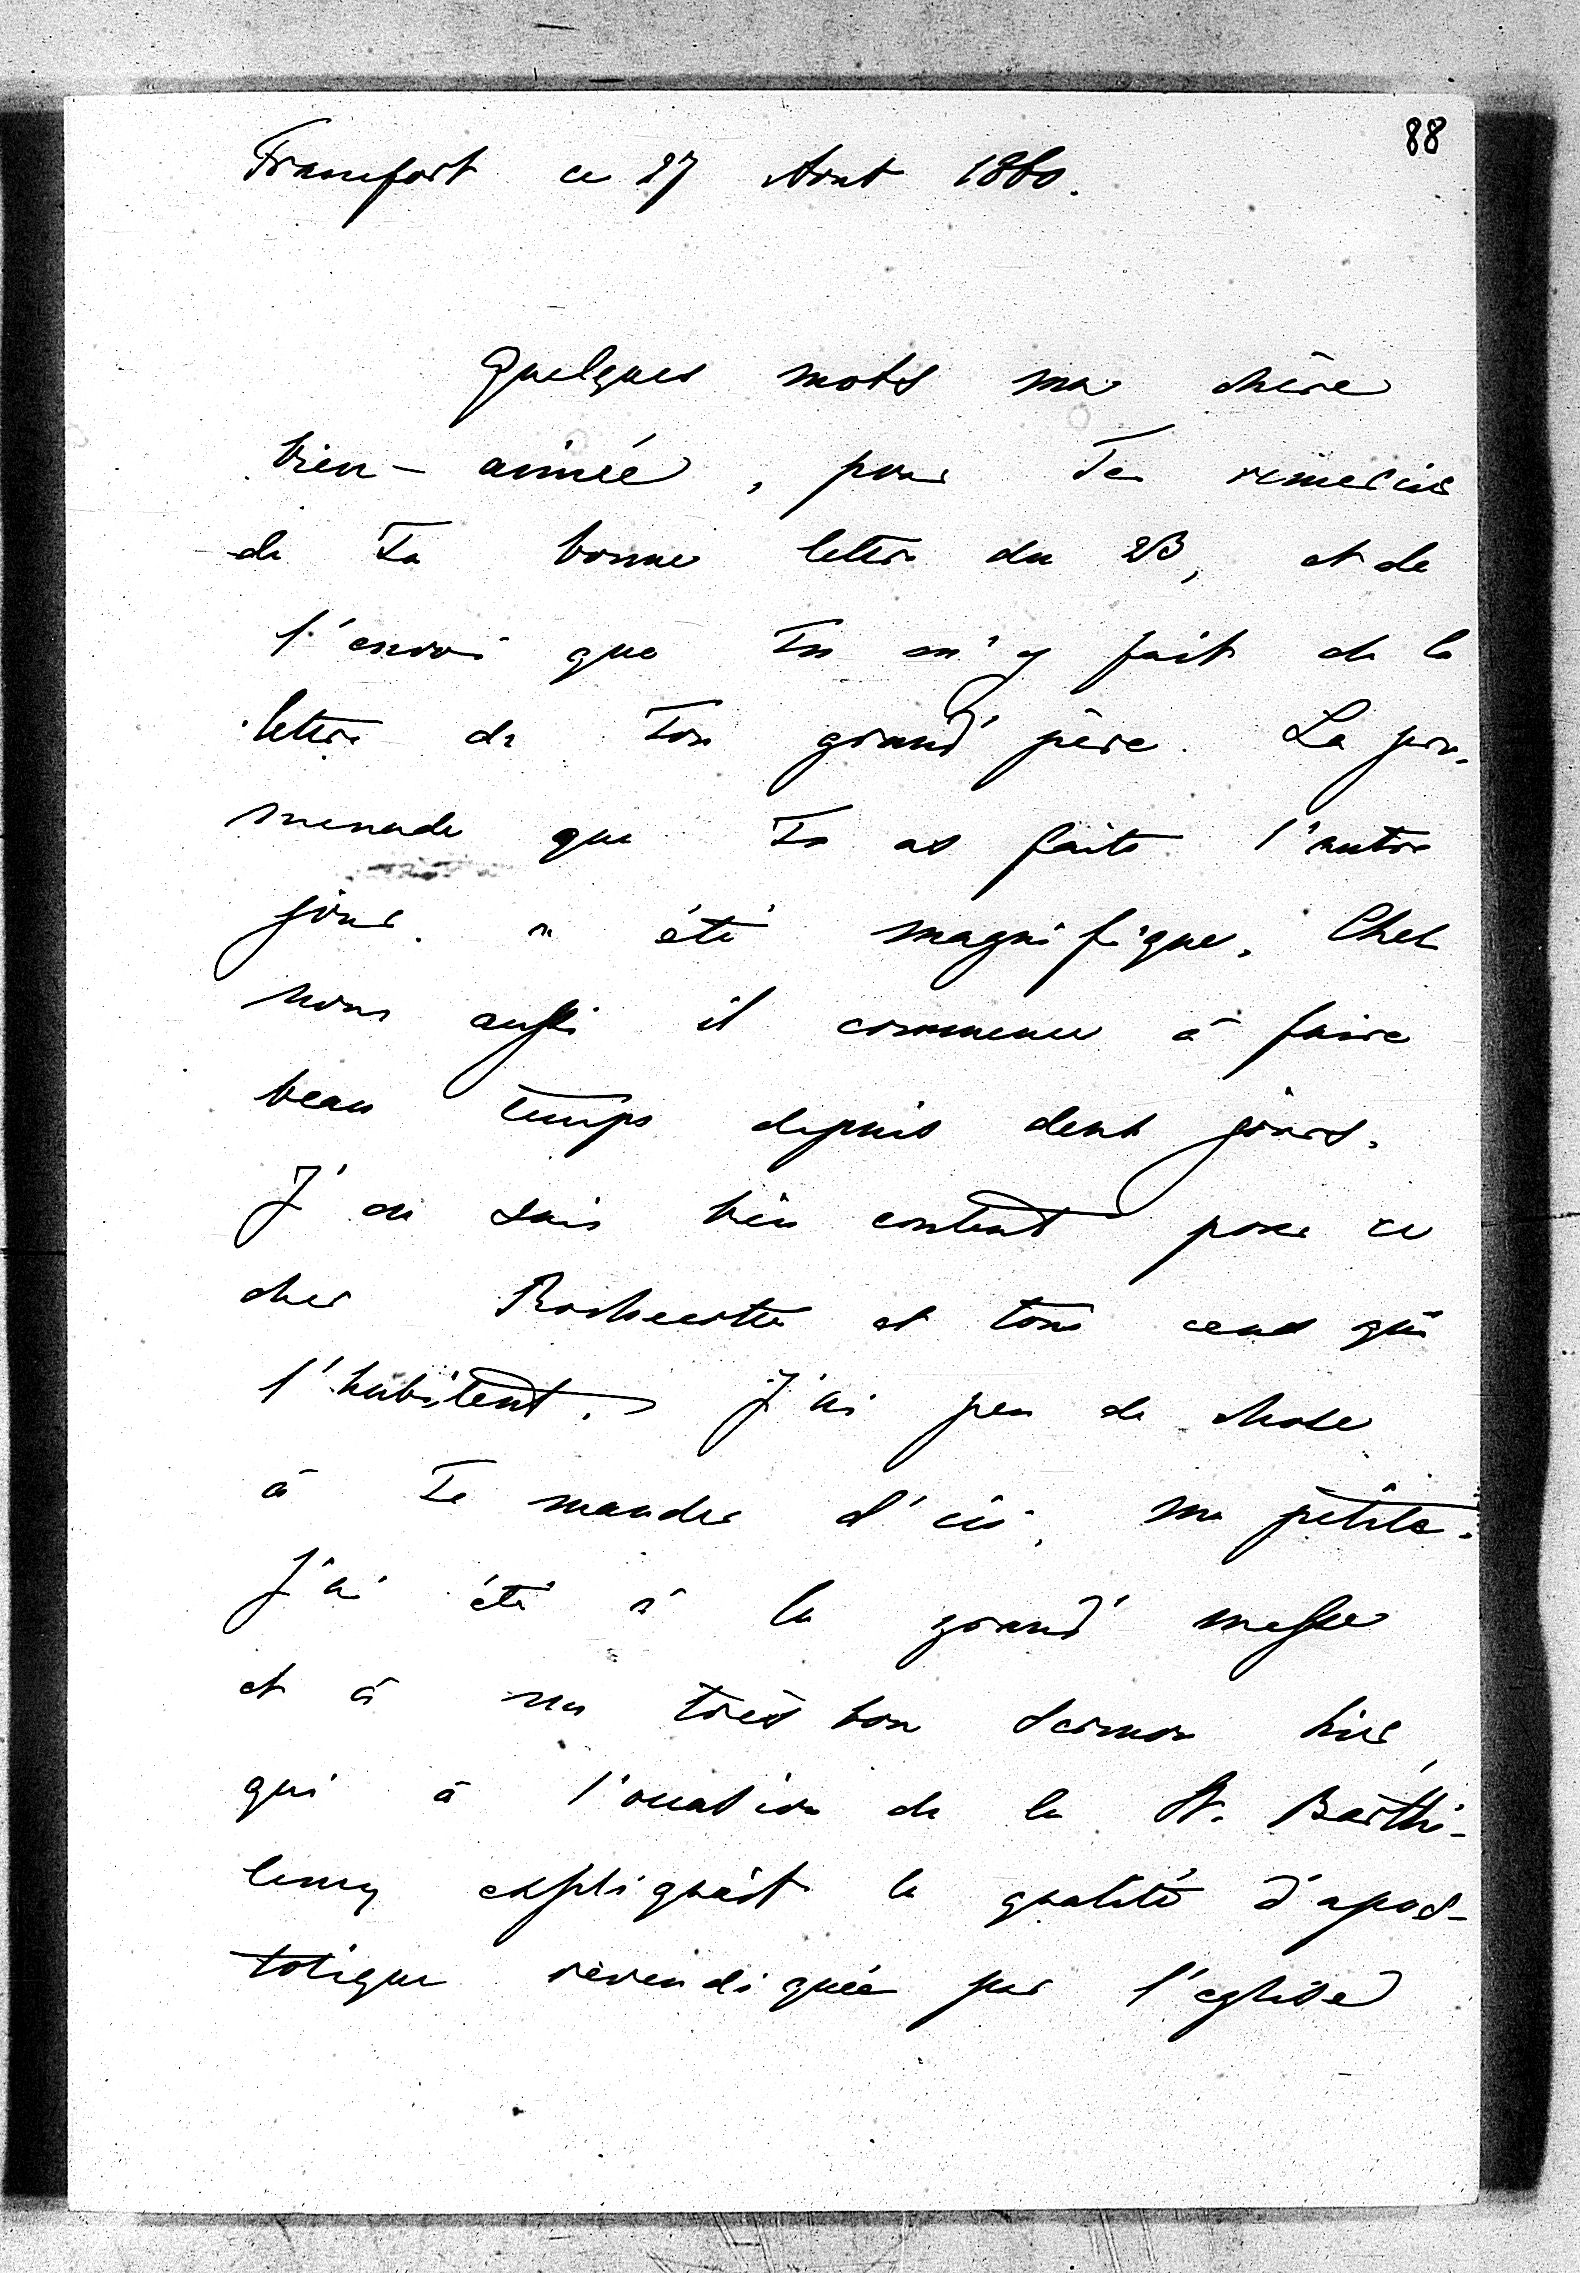 88
Francfort ce 27 Aout 1860.
Quelques mots ma chère
bien-aimée, pour Te remercier
de Ta bonne lettre du 23, et de
l'envoi que Tu m'y fait de la
lettre de Ton grand' père. La pro-
menade que Tu as faite l'autre
jour a été magnifique. Chez
nous aussi il commence à faire
beau temps depuis deux jours.
J'en suis bien content pour ce
cher Rochecotte et tous ceux qui
l'habitent. J'ai peu de chose
à Te mander d'ici, ma petite.
J'ai été à la grand' messe
et à un très bon sermon hier,
qui à l'occasion de la St. Barthé-
lemy expliquait la qualité d'apos-
tolique revendiquée par l'eglise